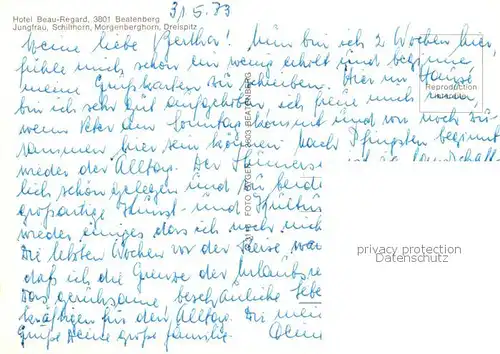 Hotel Beau-Regard, 3801 Beatenberg
Jungfrau, Schilthorn, Morgenberghorn, Dreispitz
31.5.73
Meine liebe Bertha! Nun bin ich 2 Wochen hier,
fühle mich schon ein wenig erholt und beginne
meine Grußkarten zu schreiben. Hier im Hause
bin ich sehr gut aufgehoben, ich freue mich
wenn Peter am Sonntag kommt und wir noch zu-
sammen hier sein können. Nach Pfingsten beginnt
wieder der Alltag. Der
lich schön gelegen und zu
großartige Kunst- und Kultur
wieder einiges dass ich noch nicht
Die letzten Wochen vor der Reise war
daß ich die Grenze der Urlaubsre
Das geruhsame beschauliche Lebe
kräftigen für den Alltag. Die mein
Grüße Deine große Familie. Deine
Reproduction
FOTO GYGER 3803 BEATENBERG
privacy protection
Datenschutz